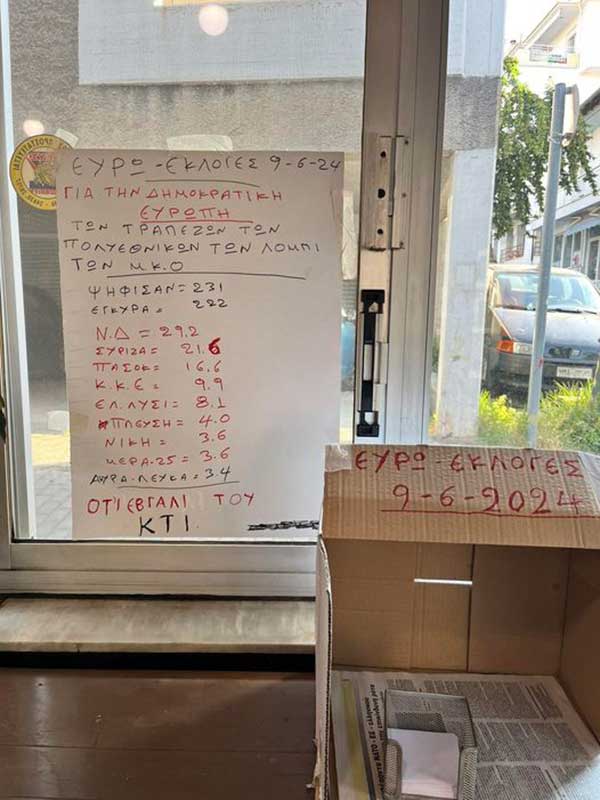 ΕΥΡΩ-ΕΚΛΟΓΕΣ 9-6-24
ΓΙΑ ΤΗΝ ΔΗΜΟΚΡΑΤΙΚΗ
ΕΥΡΩΠΗ
ΤΩΝ ΤΡΑΠΕΖΩΝ ΤΩΝ
ΠΟΛΥΕΘΝΙΚΩΝ ΤΩΝ ΛΟΜΠΙ
ΤΩΝ Μ.Κ.Ο
ΨΗΦΙΣΑΝ= 231
ΕΓΚΥΡΑ= 222
Ν.Δ = 29.2
ΣΥΡΙΖΑ= 21.6
ΠΑΣΟΚ= 16.6
Κ.Κ.Ε = 9.9
ΕΛ.ΛΥΣΙ= 8.1
ΠΛΕΥΣΗ= 4.0
ΝΙΚΗ= 3.6
ΜΕΡΑ-25= 3.6
ΑΚΥΡΑ-ΛΕΥΚΑ= 3.4
ΟΤΙ ΕΒΓΑΛΙ ΤΟΥ
ΚΤΙ.
ΕΥΡΩ-ΕΚΛΟΓΕΣ
9-6-2024